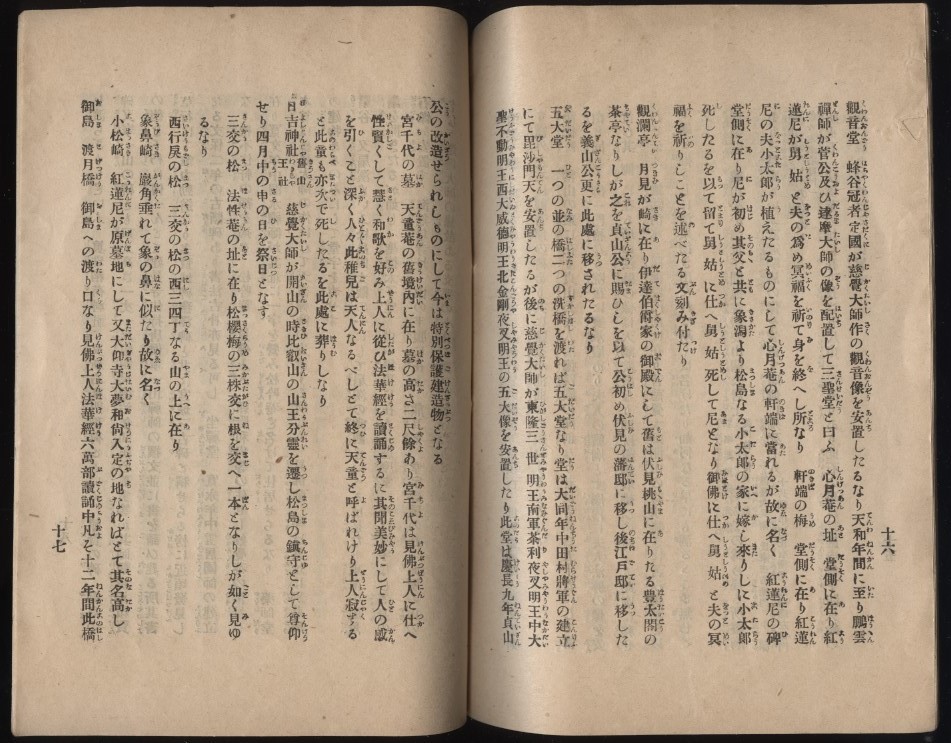 觀音堂　蜂谷冠者定國が慈覺大師作の觀音像を安置したるなり天和年間に至り鵬雲
禪師が菅公及び達摩大師の像を配置して三聖堂と曰ふ　心月菴の址　堂側に在り紅
蓮尼が舅姑と夫の爲め冥福を祈て身を終へし所なり　軒端の梅　堂側に在り紅蓮
尼の夫小太郎が植えたるものにして心月菴の軒端に當れるが故に名く　紅蓮尼の碑
堂側に在り尼が初め其父と共に象潟より松島なる小太郎の家に嫁し來りしに小太郎
死したるを以て留て舅姑に仕へ舅姑死して尼となり御佛に仕へ舅姑と夫の冥
福を祈りしことを述べたる文刻み付たり
觀瀾亭　月見が崎に在り伊達伯爵家の御殿にして舊は伏見桃山に在りたる豊太閤の
茶亭なりしが之を貞山公に賜ひしを以て公初め伏見の藩邸に移し後江戸邸に移した
るを義山公更に此處に移されたるなり
五大堂　一つの並の橋二つの洗橋を渡れば五大堂なり堂は大同年中田村將軍の建立
にて毘沙門天を安置したるが後に慈覺大師が東隆三世明王南軍茶利夜叉明王中大
聖不動明王西大威德明王北金剛夜叉明王の五大像を安置したり此堂は慶長九年貞山
十六
公の改造せられしものにして今は特別保護建造物となる
宮千代の墓　天童菴の舊境內に在り墓の高さ二尺餘あり宮千代は見佛上人に仕へ
性賢くして慧く和歌を好み上人に從ひ法華經を讀誦するに其聞美妙にして人の感
を引くこと深く人々此稚兒は天人なるべしとて終に天童と呼ばれけり上人寂する
と此童も亦次で死したるを此處に葬りしなり
日吉神社 舊山王社　慈覺大師が開山の時比叡山の山王分靈を遷し松島の鎭守として尊仰
せり四月中の申の日を祭日となす
三交の松　法性菴の址に在り松櫻梅の三株交に根を交へ一本となりしが如く見ゆ
るなり
西行戾の松　三交の松の西三四丁なる山の上に在り
象鼻崎　巖角垂れて象の鼻に似たり故に名く
小松崎　紅蓮尼が原墓地にして又大仰寺大夢和尙入定の地なればとて其名高し
御島　渡月橋　御島への渡り口なり見佛上人法華經六萬部讀誦中凡そ十二年間此橋
十七